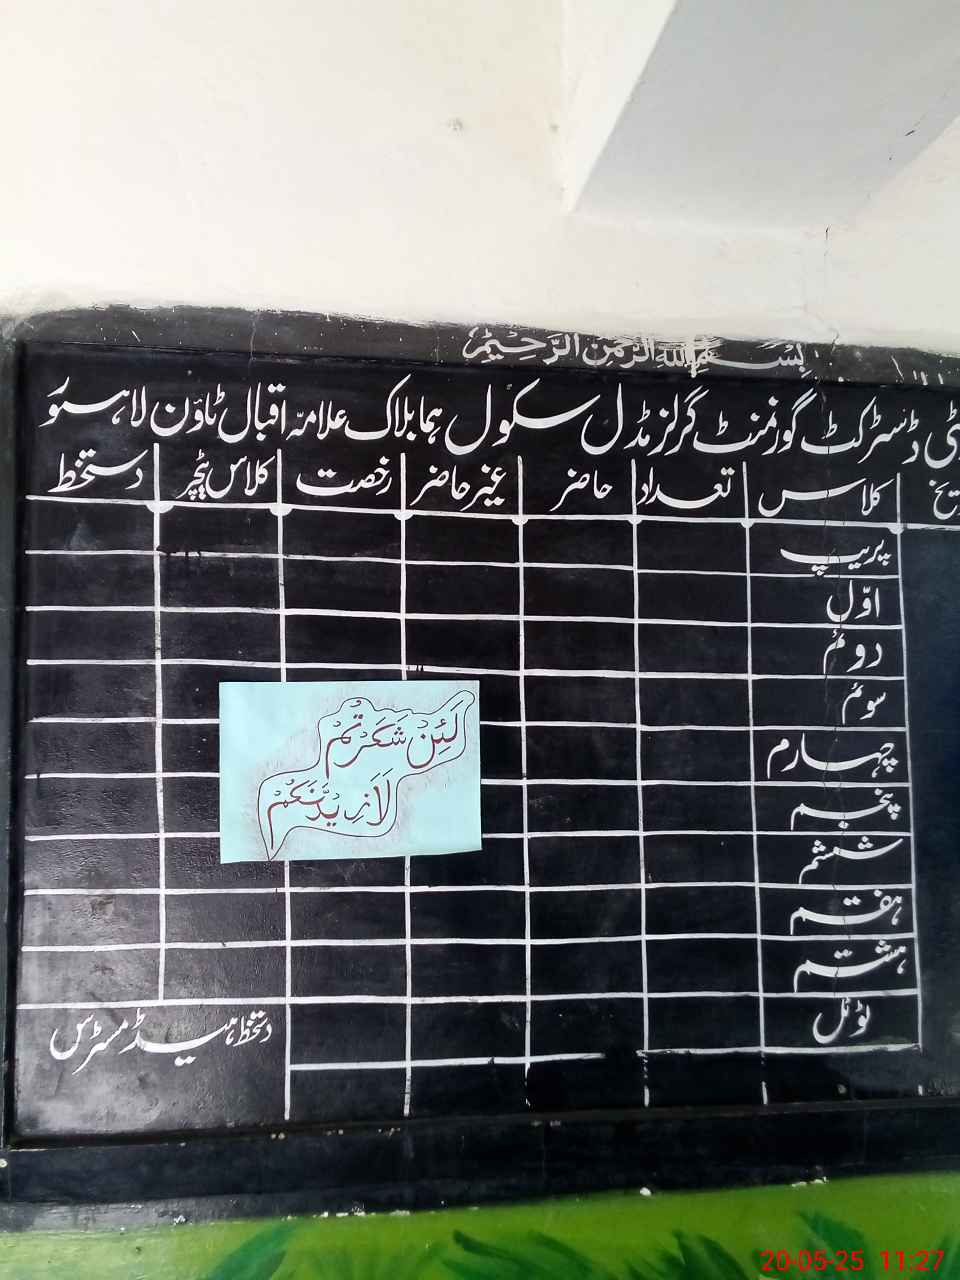 بِسْمِ اللهِ الرَّحْمٰنِ الرَّحِيْمِ
ٹی ڈسٹرکٹ گورنمنٹ گرلز مڈل سکول ہما بلاک علامہ اقبال ٹاؤن لاہور
یخ کلاس تعداد حاضر غیر حاضر رخصت کلاس ٹیچر دستخط
پریپ
اوّل
دوئم
سوئم
چہارم
پنجم
ششم
ہفتم
ہشتم
ٹوٹل
دستخط ہیڈ مسٹرس
لَئِنْ شَكَرْتُمْ
لَاَزِيْدَنَّكُمْ
20-05-25 11:27